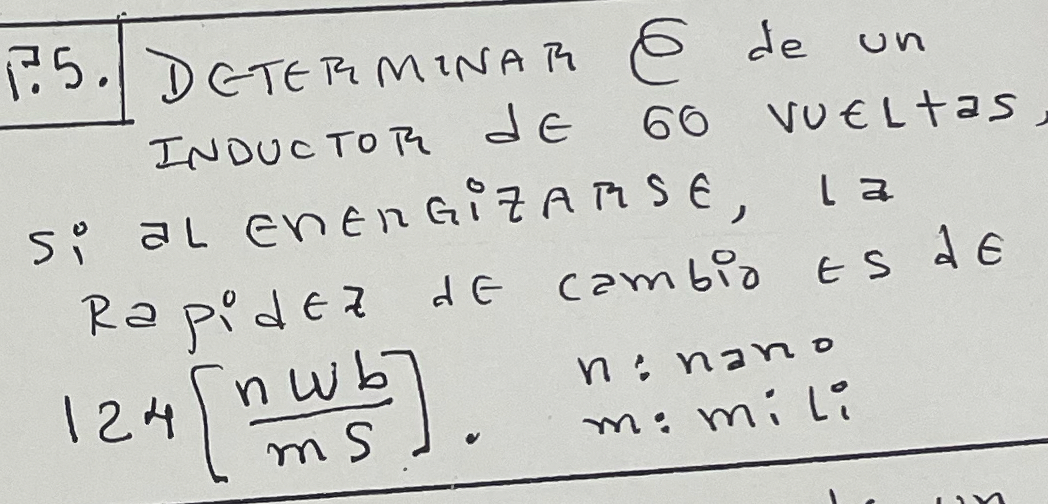 P.5. DETERMINAR ℰ de un
INDUCTOR dE 60 VUELtas,
si aL EnERGiZARSE, la
RapidEz dE cambio ES dE
124 [nWb/mS]. n: nano
m: mili